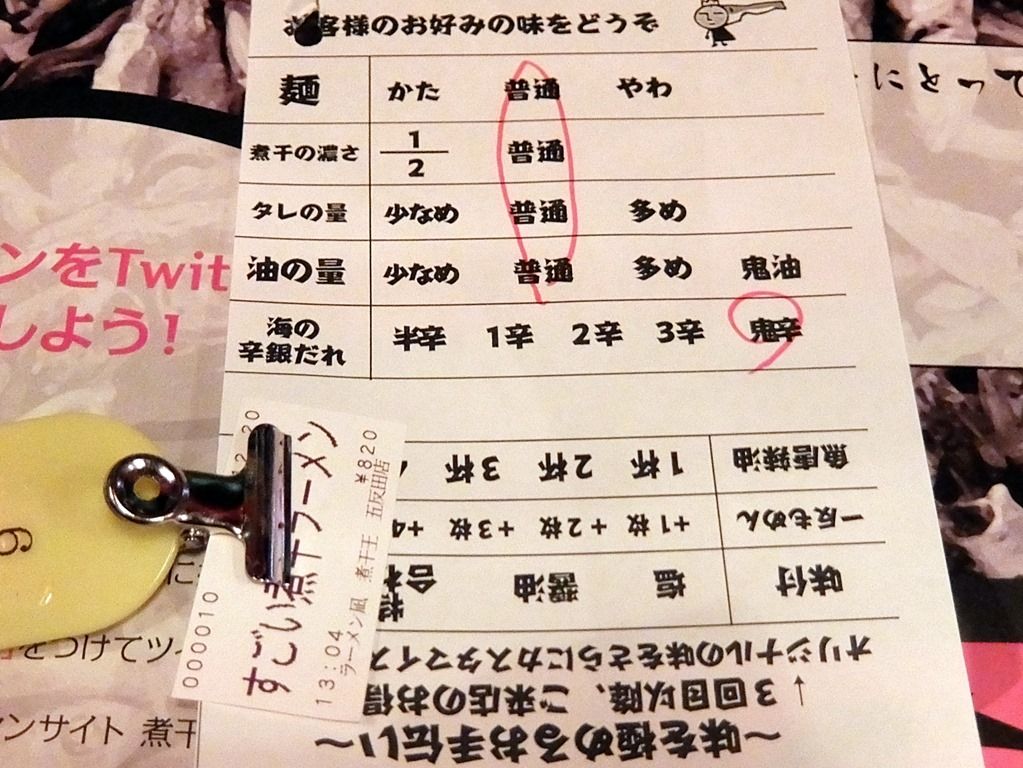 客様のお好みの味をどうぞ
麺 かた 普通 やわ
煮干の濃さ 1/2 普通
タレの量 少なめ 普通 多め
油の量 少なめ 普通 多め 鬼油
海の辛銀だれ 半辛 1辛 2辛 3辛 鬼辛
にとって
ンをTwit
しよう!
すごい煮干ラーメン
¥820
000010
13:04
ラーメン凪 煮干王 五反田店
をつけてツ
ンサイト 煮干
~味を極めるお手伝い~
3回目以降、ご来店のお得
↑
オリジナルの味をさらにカスタマイズ
味付 塩 醤油
一反もめん +1枚 +2枚 +3枚 +4
魚唐辣油 1杯 2杯 3杯